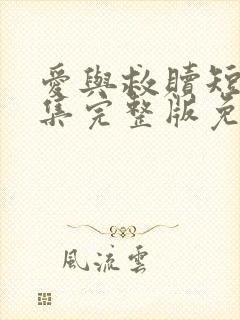 愛與救贖短
集完整版免
風流雲